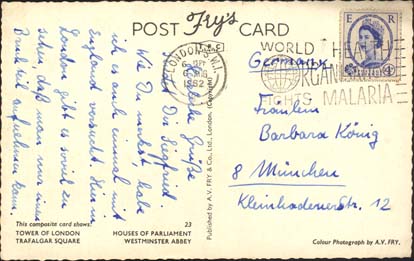 POST Fry's CARD
Herzliche Grüße
sendet Dir Siegfried.
Wie Du merkst, habe
ich es auch einmal mit
England versucht. Hier in
London gibt es soviel zu
sehen, daß man nur einen
Bruchteil aufnehmen kann.
This composite card shows:
TOWER OF LONDON
TRAFALGAR SQUARE
23
HOUSES OF PARLIAMENT
WESTMINSTER ABBEY
Published by A.V. FRY. & Co., Ltd., London. (Copyright)
E R
LONDON W.1.
6
AUG
1962
WORLD HEALTH
ORGANIZATION
FIGHTS MALARIA
Germany
Fräulein
Barbara König
8 München
Kleinhadernerstr. 12
Colour Photograph by A.V. FRY.